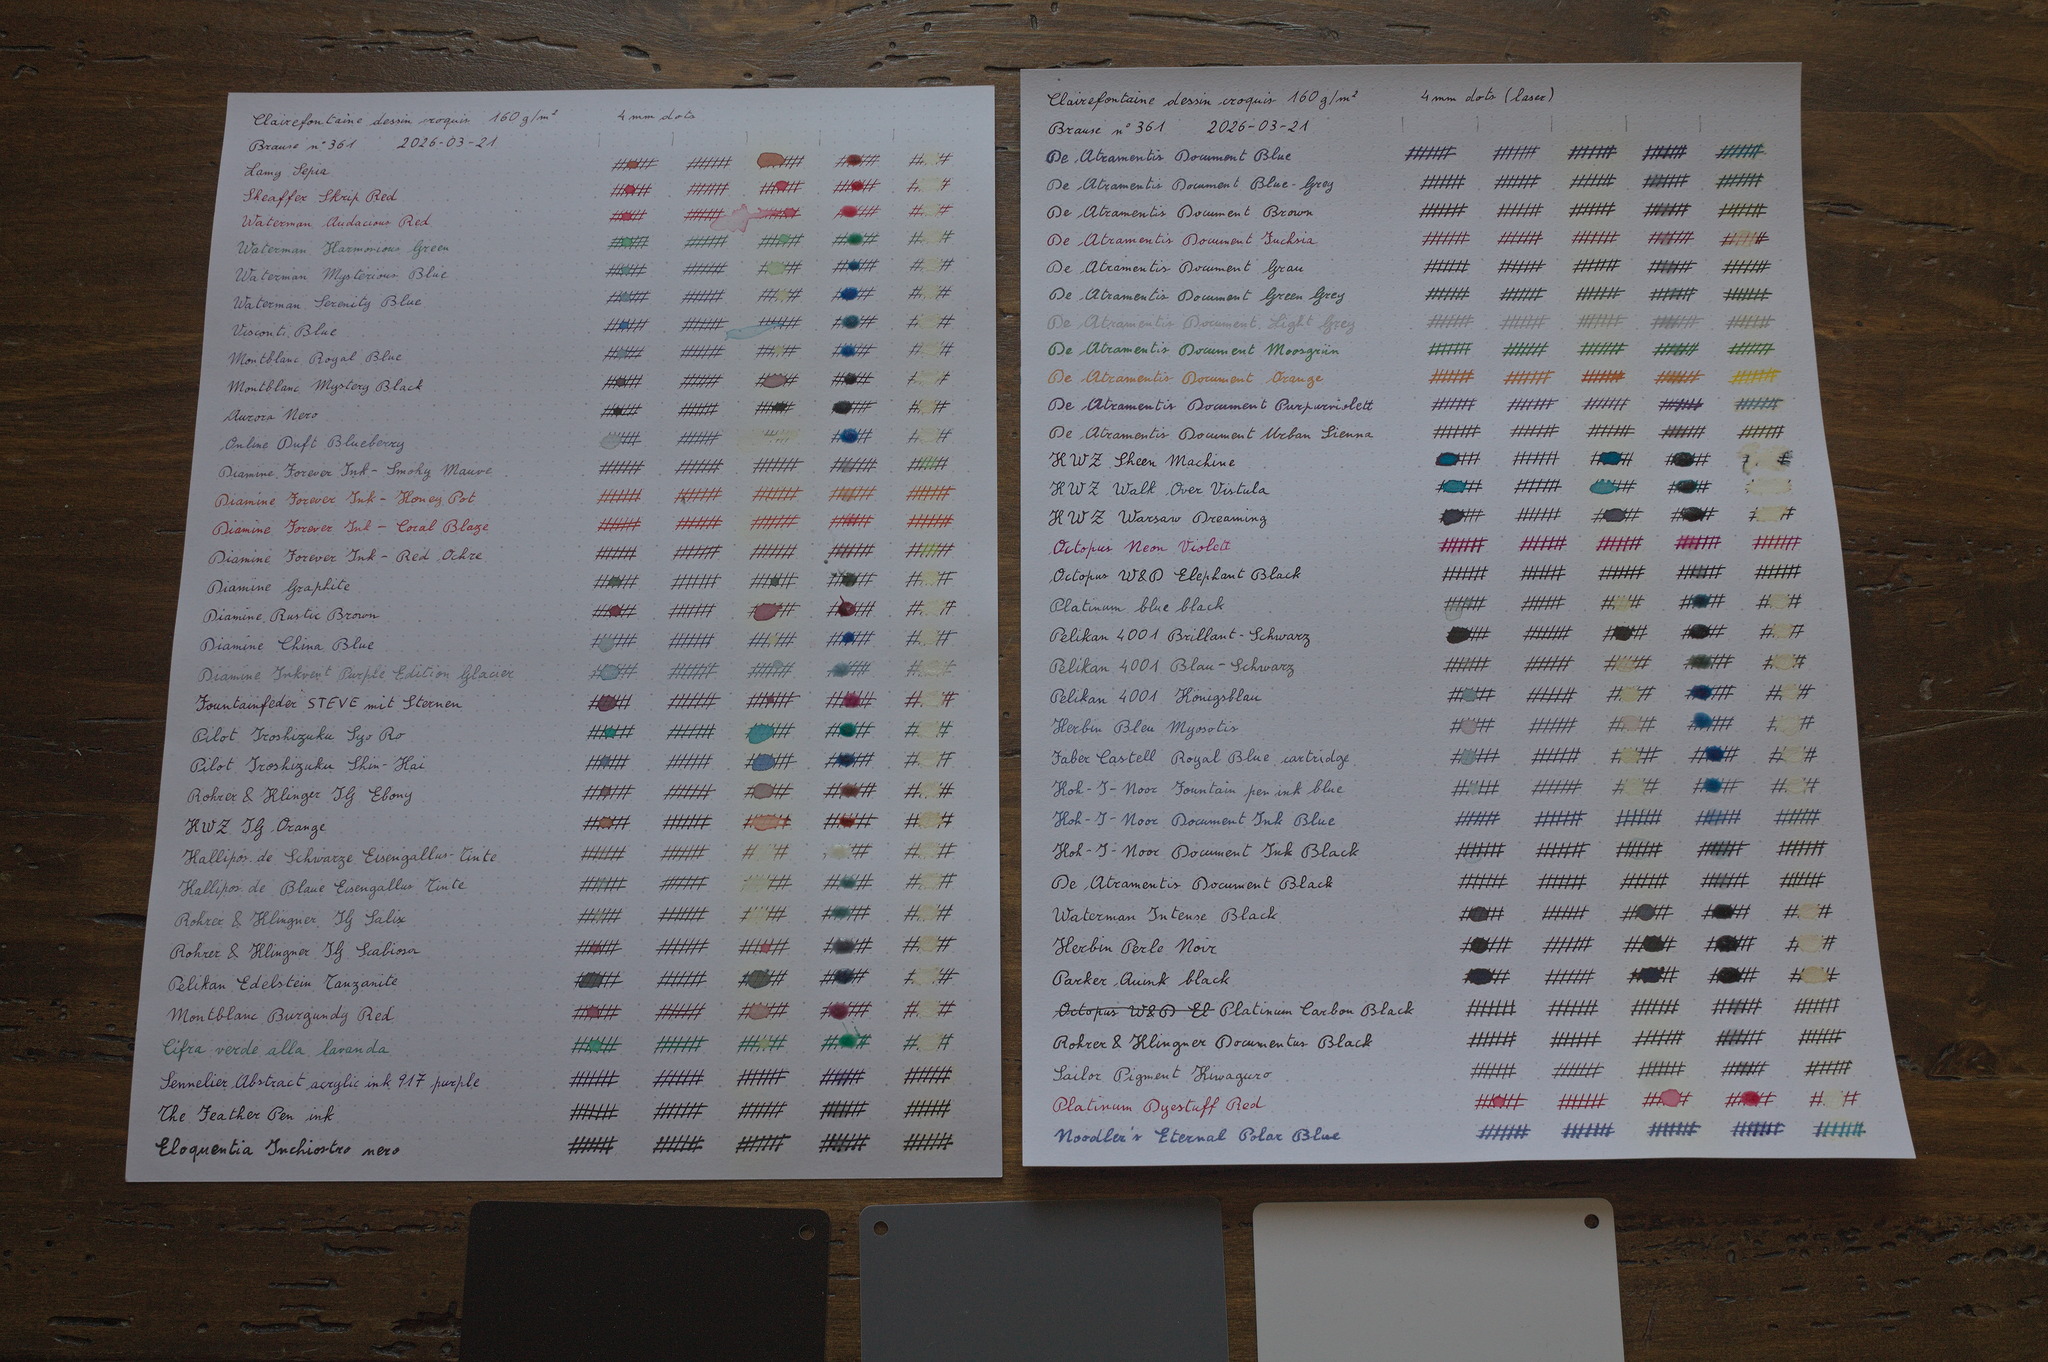 Clairefontaine dessin croquis 160 g/m² 4 mm dots
Brause n° 361 2026-03-21
Lamy Sepia
Sheaffer Skrip Red
Waterman Audacious Red
Waterman Harmonious Green
Waterman Mysterious Blue
Waterman Serenity Blue
Visconti Blue
Montblanc Royal Blue
Montblanc Mystery Black
Aurora Nero
Online Duft Blueberry
Diamine Forever Ink - Smoky Mauve
Diamine Forever Ink - Honey Pot
Diamine Forever Ink - Coral Blaze
Diamine Forever Ink - Red Ochre
Diamine Graphite
Diamine Rustic Brown
Diamine China Blue
Diamine Inkvent Purple Edition Glacier
Fountainfeder STEVE mit Sternen
Pilot Iroshizuku Syo Ro
Pilot Iroshizuku Shin-Kai
Rohrer & Klinger IG Ebony
KWZ IG Orange
Hallipos.de Schwarze Eisengallus-Tinte
Hallipos.de Blaue Eisengallus Tinte
Rohrer & Klingner IG Salix
Rohrer & Klingner IG Scabiosa
Pelikan Edelstein Tanzanite
Montblanc Burgundy Red
Cifra verde alla lavanda
Sennelier Abstract acrylic ink 917 purple
The Feather Pen ink
Eloquentia Inchiostro nero
Clairefontaine dessin croquis 160 g/m² 4 mm dots (laser)
Brause n° 361 2026-03-21
De Atramentis Document Blue
De Atramentis Document Blue-Grey
De Atramentis Document Brown
De Atramentis Document Fuchsia
De Atramentis Document Grau
De Atramentis Document Green Grey
De Atramentis Document Light Grey
De Atramentis Document Moosgrün
De Atramentis Document Orange
De Atramentis Document Purpurviolett
De Atramentis Document Urban Sienna
KWZ Sheen Machine
KWZ Walk Over Vistula
KWZ Warsaw Dreaming
Octopus Neon Violett
Octopus W&D Elephant Black
Platinum blue black
Pelikan 4001 Brillant-Schwarz
Pelikan 4001 Blau-Schwarz
Pelikan 4001 Königsblau
Herbin Bleu Myosotis
Faber Castell Royal Blue cartridge
Koh-I-Noor Fountain pen ink blue
Koh-I-Noor Document Ink Blue
Koh-I-Noor Document Ink Black
De Atramentis Document Black
Waterman Intense Black
Herbin Perle Noir
Parker Quink black
Octopus W&D El Platinum Carbon Black
Rohrer & Klingner Documentus Black
Sailor Pigment Kiwaguro
Platinum Dyestuff Red
Noodler's Eternal Polar Blue